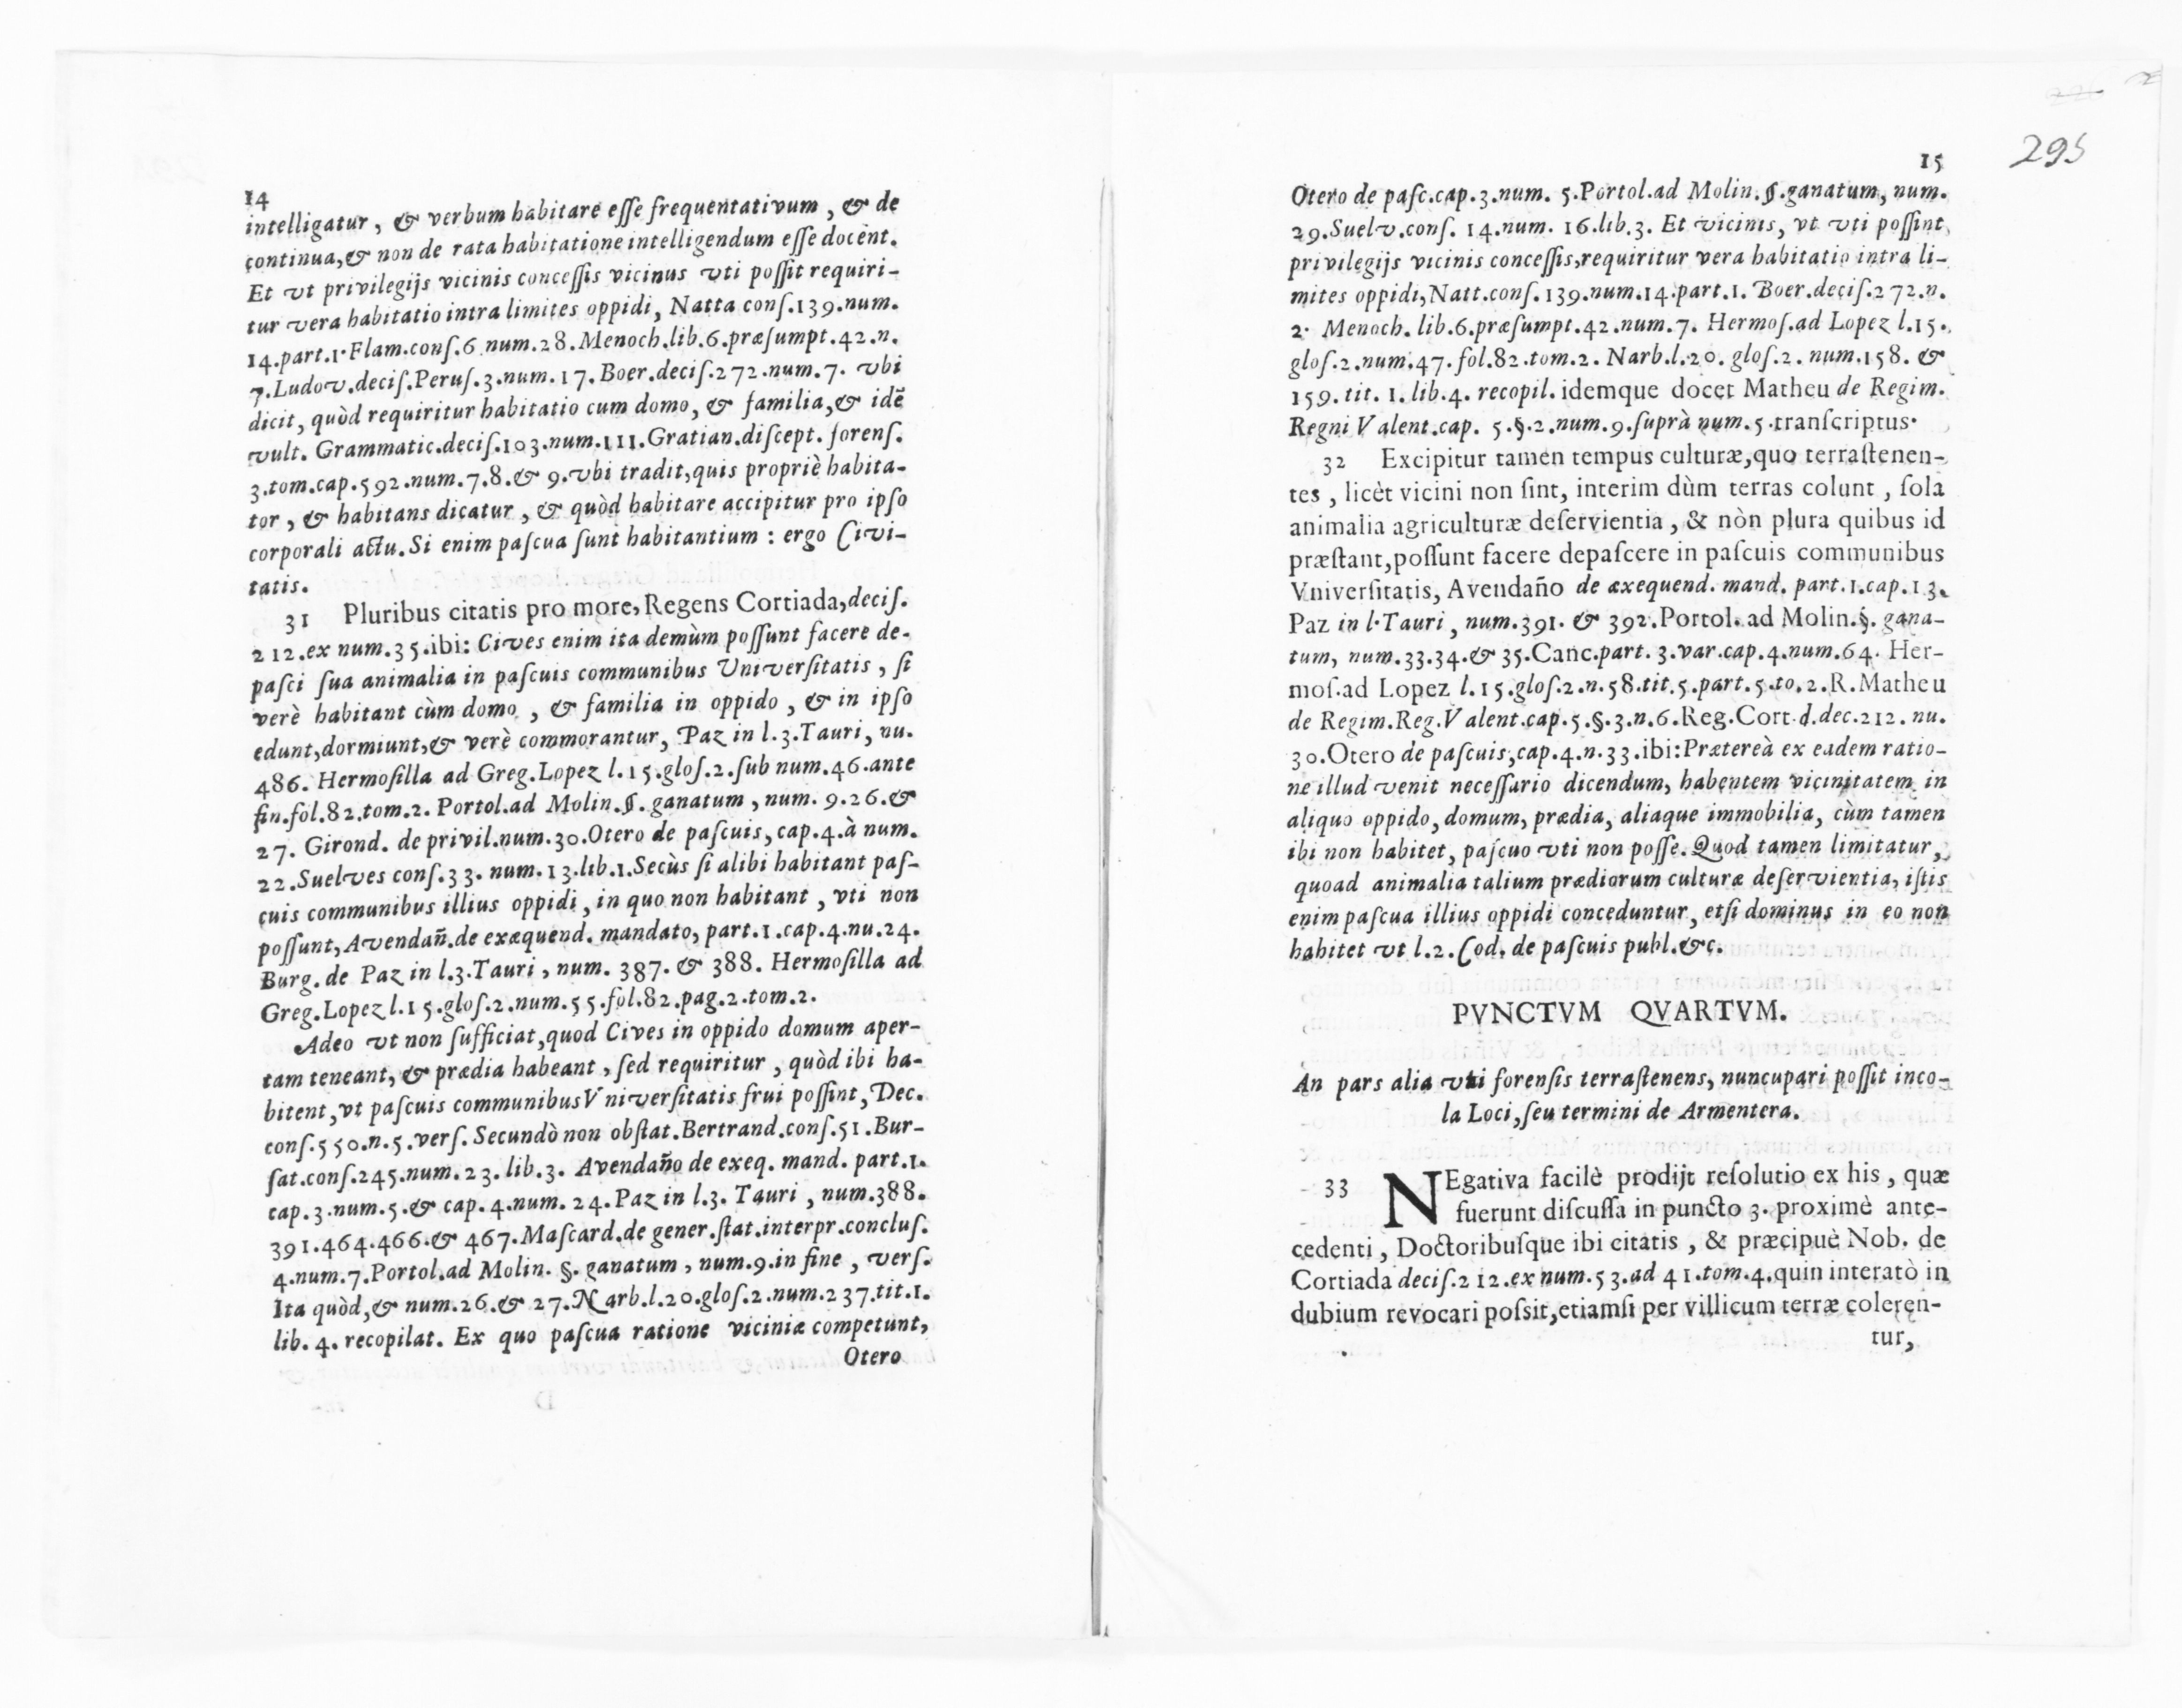 14
intelligatur, & verbum habitare eſſe frequentativum, & de
continua,& non de rata habitatione intelligendum eſſe docent.
Et vt privilegijs vicinis conceſſis vicinus vti poſſit requiri-
tur vera habitatio intra limites oppidi, Natta conſ.139.num.
14.part.1.Flam.conſ.6.num.28.Menoch.lib.6.præſumpt.42.n.
7.Ludov.deciſ.Peruſ.3.num.17.Boer.deciſ.272.num.7. vbi
dicit, quòd requiritur habitatio cum domo, & familia,& idẽ
vult. Grammatic.deciſ.103.num.111.Gratian.diſcept. forenſ.
3.tom.cap.592.num.7.8.& 9.vbi tradit,quis propriè habita-
tor, & habitans dicatur, & quòd habitare accipitur pro ipſo
corporali actu.Si enim paſcua ſunt habitantium : ergo Civi-
tatis.
31 Pluribus citatis pro more, Regens Cortiada,deciſ.
212.ex num.35.ibi: Cives enim ita demùm poſſunt facere de-
paſci ſua animalia in paſcuis communibus Univerſitatis, ſi
verè habitant cùm domo, & familia in oppido, & in ipſo
edunt,dormiunt,& verè commorantur, Paz in l.3.Tauri, nu.
486. Hermoſilla ad Greg.Lopez l.15.gloſ.2.ſub num.46.ante
fin.fol.82.tom.2. Portol.ad Molin.§. ganatum, num. 9.26.&
27. Girond. de privil.num.30.Otero de paſcuis, cap.4.à num.
22.Suelves conſ.33. num.13.lib.1.Secùs ſi alibi habitant paſ-
cuis communibus illius oppidi, in quo non habitant, vti non
poſſunt, Avendañ.de exæquend. mandato, part.1.cap.4.nu.24.
Burg. de Paz in l.3.Tauri, num. 387. & 388. Hermoſilla ad
Greg.Lopez l.15.gloſ.2.num.55.fol.82.pag.2.tom.2.
Adeo vt non ſufficiat,quod Cives in oppido domum aper-
tam teneant, & prædia habeant, ſed requiritur, quòd ibi ha-
bitent, vt paſcuis communibus Vniverſitatis frui poſſint, Dec.
conſ.550.n.5.verſ. Secundò non obſtat.Bertrand.conſ.51.Bur-
ſat.conſ.245.num.23. lib.3. Avendaño de exeq. mand. part.1.
cap.3.num.5.& cap.4.num. 24.Paz in l.3. Tauri, num.388.
391.464.466.& 467.Maſcard.de gener.ſtat.interpr.concluſ.
4.num.7.Portol.ad Molin. §. ganatum, num.9.in fine, verſ.
Ita quòd,& num.26.& 27.Narb.l.20.gloſ.2.num.237.tit.1.
lib. 4. recopilat. Ex quo paſcua ratione viciniæ competunt,
Otero
15
295
Otero de paſc.cap.3.num. 5.Portol.ad Molin.§.ganatum, num.
29.Suelv.conſ. 14.num. 16.lib.3. Et vicinis, vt vti poſſint
privilegijs vicinis conceſſis,requiritur vera habitatio intra li-
mites oppidi,Natt.conſ.139.num.14.part.1. Boer.deciſ.272.n.
2. Menoch. lib.6.præſumpt.42.num.7. Hermoſ.ad Lopez l.15.
gloſ.2.num.47.fol.82.tom.2. Narb.l.20. gloſ.2. num.158. &
159.tit. 1. lib.4. recopil. idemque docet Matheu de Regim.
Regni Valent.cap. 5.§.2.num.9.ſuprà num.5.tranſcriptus.
32 Excipitur tamen tempus culturæ,quo terraſtenen-
tes, licèt vicini non ſint, interim dùm terras colunt, ſola
animalia agriculturæ deſervientia, & nòn plura quibus id
præſtant,poſſunt facere depaſcere in paſcuis communibus
Vniverſitatis, Avendaño de æxequend. mand. part.1.cap.13.
Paz in l.Tauri, num.391. & 392.Portol. ad Molin.§. gana-
tum, num.33.34.& 35.Canc.part. 3.var.cap.4.num.64. Her-
moſ.ad Lopez l.15.gloſ.2.n.58.tit.5.part.5.to.2.R.Matheu
de Regim.Reg.Valent.cap.5.§.3.n.6.Reg.Cort.d.dec.212.nu.
30.Otero de paſcuis,cap.4.n.33.ibi:Prætereà ex eadem ratio-
ne illud venit neceſſario dicendum, habentem vicinitatem in
aliquo oppido, domum, prædia, aliaque immobilia, cùm tamen
ibi non habitet, paſcuo vti non poſſe. Quod tamen limitatur,
quoad animalia talium prædiorum culturæ deſervientia, iſtis
enim paſcua illius oppidi conceduntur, etſi dominus in eo non
habitet vt l.2. Cod. de paſcuis publ.&c.
PVNCTVM QVARTVM.
An pars alia vti forenſis terraſtenens, nuncupari poſſit inco-
la Loci, ſeu termini de Armentera.
33 NEgativa facilè prodijt reſolutio ex his, quæ
fuerunt diſcuſſa in puncto 3. proximè ante-
cedenti, Doctoribuſque ibi citatis, & præcipuè Nob. de
Cortiada deciſ.212.ex num.53.ad 41.tom.4.quin interatò in
dubium revocari poſsit,etiamſi per villicum terræ coleren-
tur,